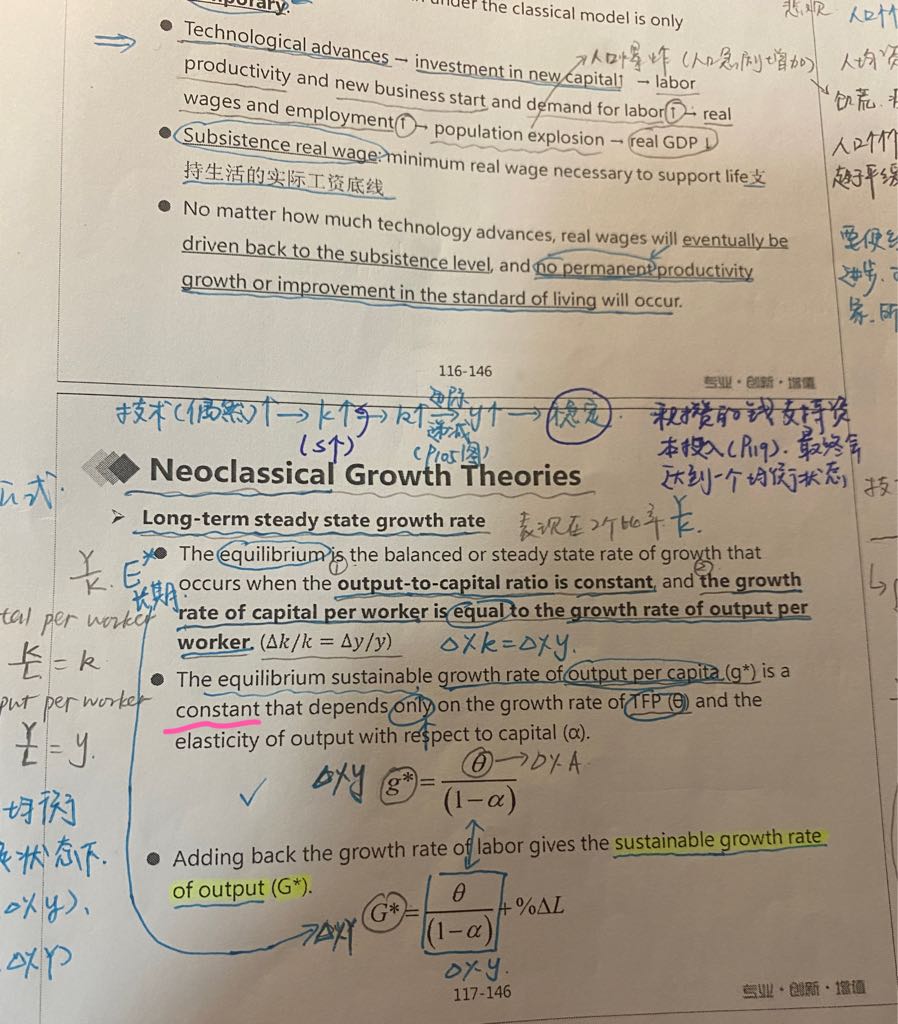 porary.
under the classical model is only
● Technological advances → investment in new capital↑ → labor
人口爆炸 (人口急剧增加)
productivity and new business start and demand for labor↑ → real
wages and employment↑ → population explosion → real GDP↓
● Subsistence real wage: minimum real wage necessary to support life支
持生活的实际工资底线
● No matter how much technology advances, real wages will eventually be
driven back to the subsistence level, and no permanent productivity
growth or improvement in the standard of living will occur.
人口个
人均资
饥荒.
人口个个
趋于平缓
要使经
进步.
家.所
116-146
专业·创新·增值
技术(偶然)↑ → k↑ → k↑ → y↑ → 稳定.
(S↑)
边际
递减
(P105图)
积攒的钱支持资
本投入(P119). 最终会
达到一个均衡状态,
Neoclassical Growth Theories
➢ Long-term steady state growth rate
表现在2个比率 Y/K.
● The equilibrium is the balanced or steady state rate of growth that
① ②
occurs when the output-to-capital ratio is constant, and the growth
rate of capital per worker is equal to the growth rate of output per
worker. (Δk/k = Δy/y) Δ%k=Δ%y.
● The equilibrium sustainable growth rate of output per capita (g*) is a
constant that depends only on the growth rate of TFP (θ) and the
elasticity of output with respect to capital (α).
✓ Δ%y g* = θ/(1−α) → Δ%A
● Adding back the growth rate of labor gives the sustainable growth rate
of output (G*).
Δ%Y G* = θ/(1−α) + %ΔL
Δ%y.
117-146
专业·创新·增值
公式.
Y/K. E*
长期
tal per worker
K/L = k
put per worker
Y/L = y.
均衡
状态下.
Δ%y),
Δ%Y)
技